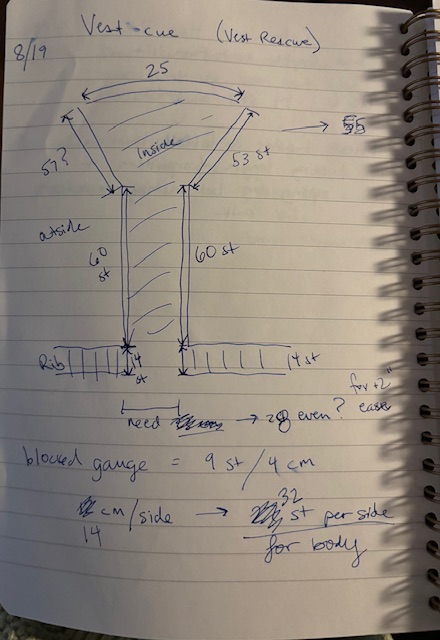 Vest-cue (Vest Rescue)
8/19
25
Inside
57?
53 st
→ 55
outside
60 st
60 st
Rib
14 st
14 st
need → 28 even? for +2" ease
blocked gauge = 9 st / 4 cm
cm/side → 32 st per side
14
for body